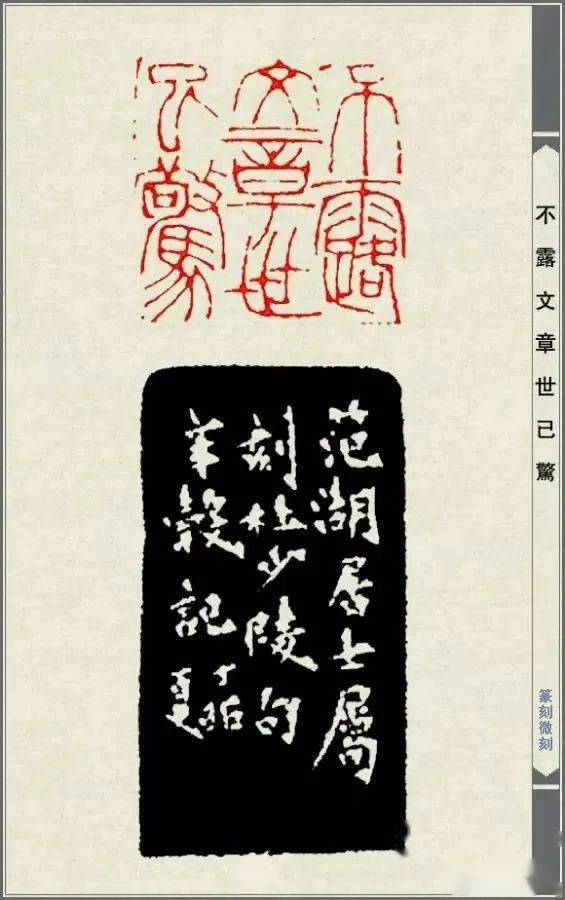 不露
文章世
已驚
范湖居士屬
刻杜少陵句
辛穀記
夏
不露文章世已驚
篆刻微刻